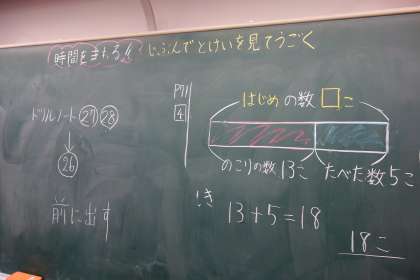 時間をまもる!! じぶんでとけいを見てうごく
ドリルノート㉗㉘
↓
㉖
前に出す
P71
4
はじめの数□こ
のこりの数13こ たべた数5こ
しき
13+5=18
18こ